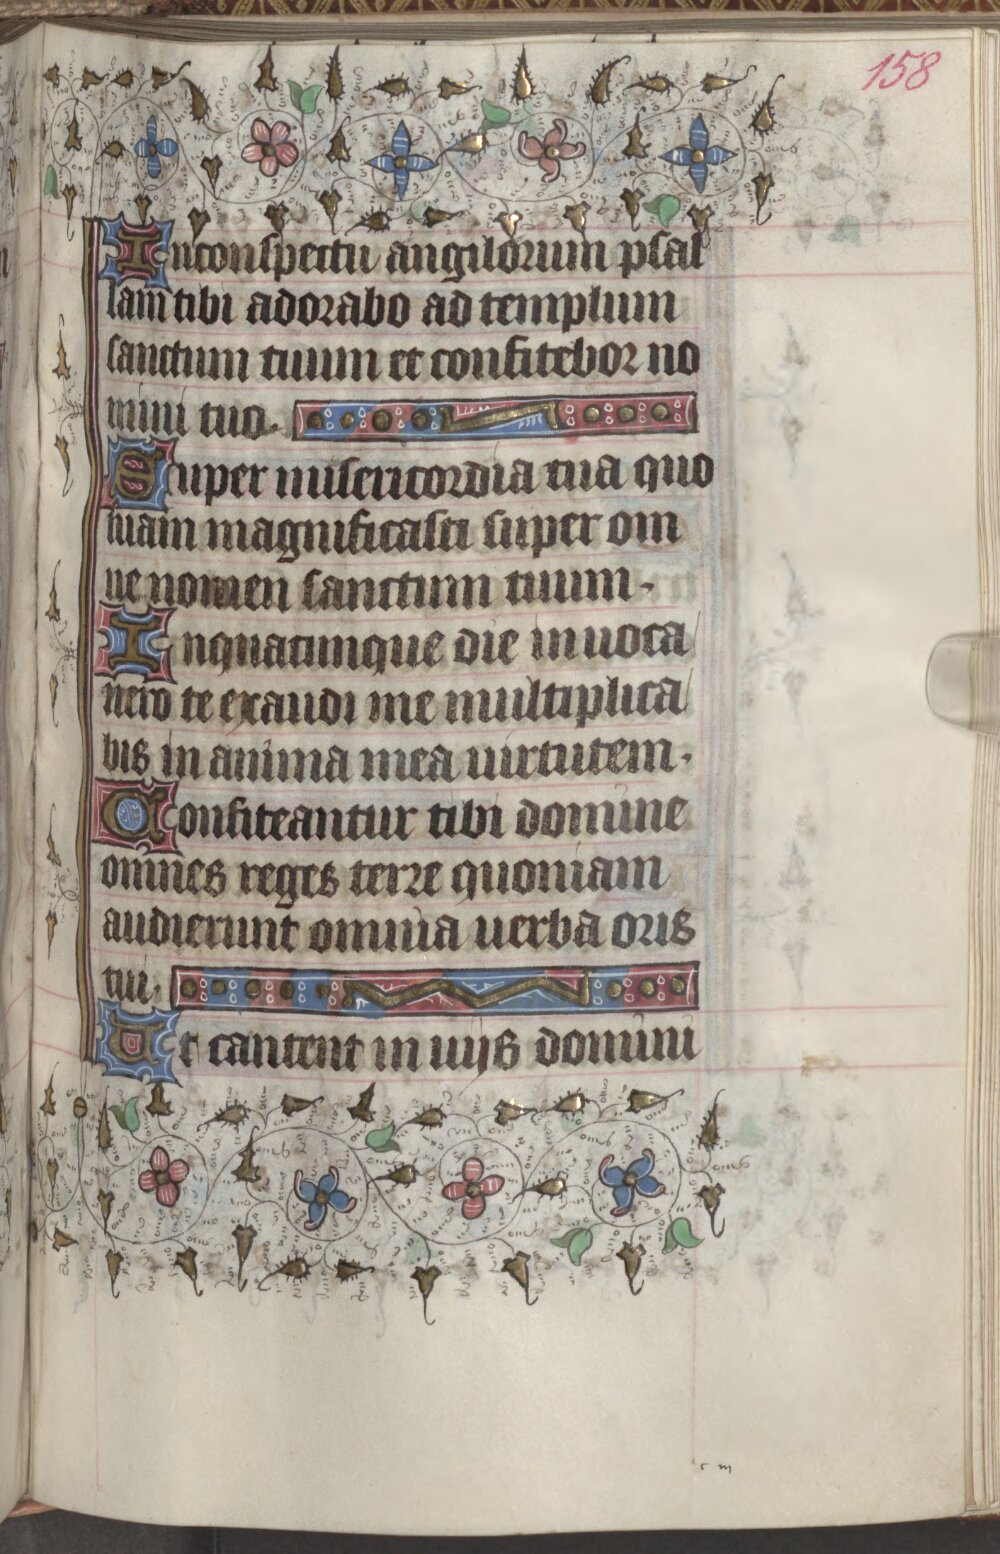 158
In conspectu angilorum psal
lam tibi adorabo ad templum
sanctum tuum et confitebor no
mini tuo.
Super misericordia tua quo
niam magnificasti super om
ne nomen sanctum tuum.
Inquacunque die inuoca
uero te exaudi me multiplica
bis in anima mea uirtutem.
Confiteantur tibi domine
omnes reges terre quoniam
audierunt omnia uerba oris
tui.
Et cantent in uijs domini